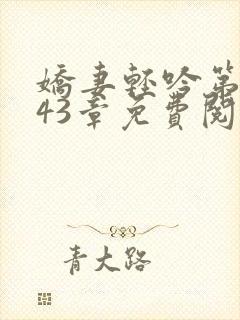 嬌妻輕吟第
43章免費閱
青大路